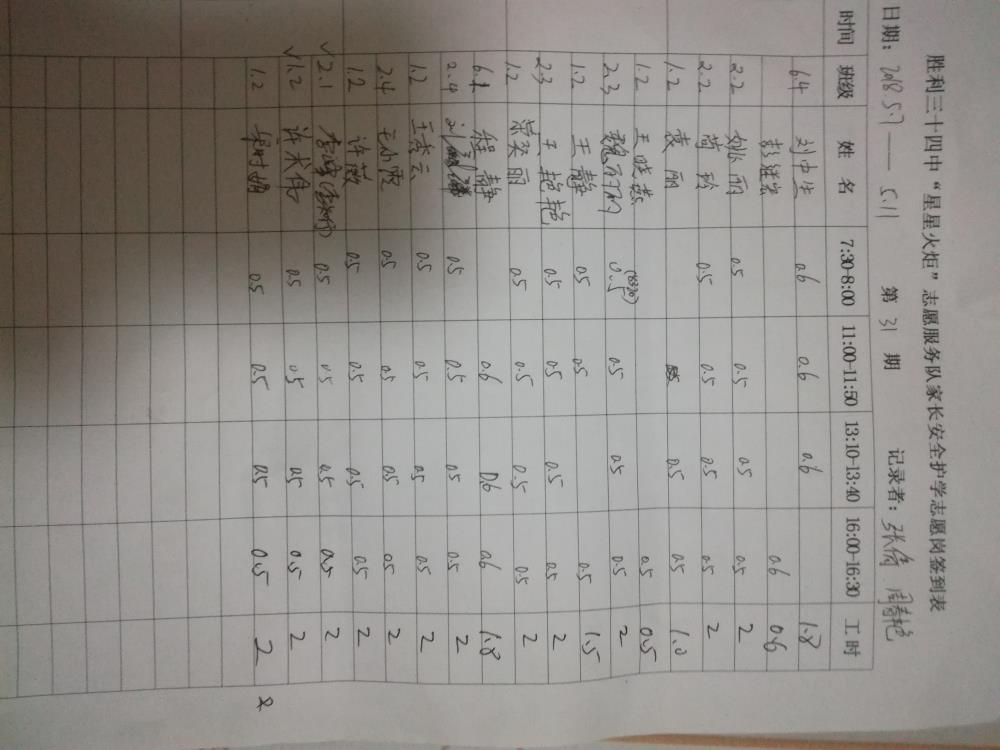 胜利三十四中“星星火炬”志愿服务队家长安全护学志愿岗签到表
日期：2018.5.7——5.11 第 31 期 记录者：张倩 周春艳
时间 班级 姓名 7:30-8:00 11:00-11:50 13:10-13:40 16:00-16:30 工时
6.4 刘中生 0.6 0.6 0.6 1.8
彭继宏 0.6 0.6
2.2 姚丽 0.5 0.5 0.5 0.5 2
2.2 荀玲 0.5 0.5 0.5 0.5 2
1.2 袁丽 0.5 0.5 1.0
1.2 王晓燕 0.5 0.5
2.3 魏 0.5 0.5 0.5 0.5 2
1.2 王静 0.5 0.5 0.5 1.5
2.3 王艳艳 0.5 0.5 0.5 0.5 2
1.2 荣翠丽 0.5 0.5 0.5 0.5 2
6.1 程静 0.6 0.6 0.6 1.8
2.4 0.5 0.5 0.5 0.5 2
1.2 王秀云 0.5 0.5 0.5 0.5 2
2.4 王小霞 0.5 0.5 0.5 0.5 2
1.2 许薇 0.5 0.5 0.5 0.5 2
√2.1 0.5 0.5 0.5 0.5 2
√1.2 许术伟 0.5 0.5 0.5 0.5 2
1.2 0.5 0.5 0.5 0.5 2